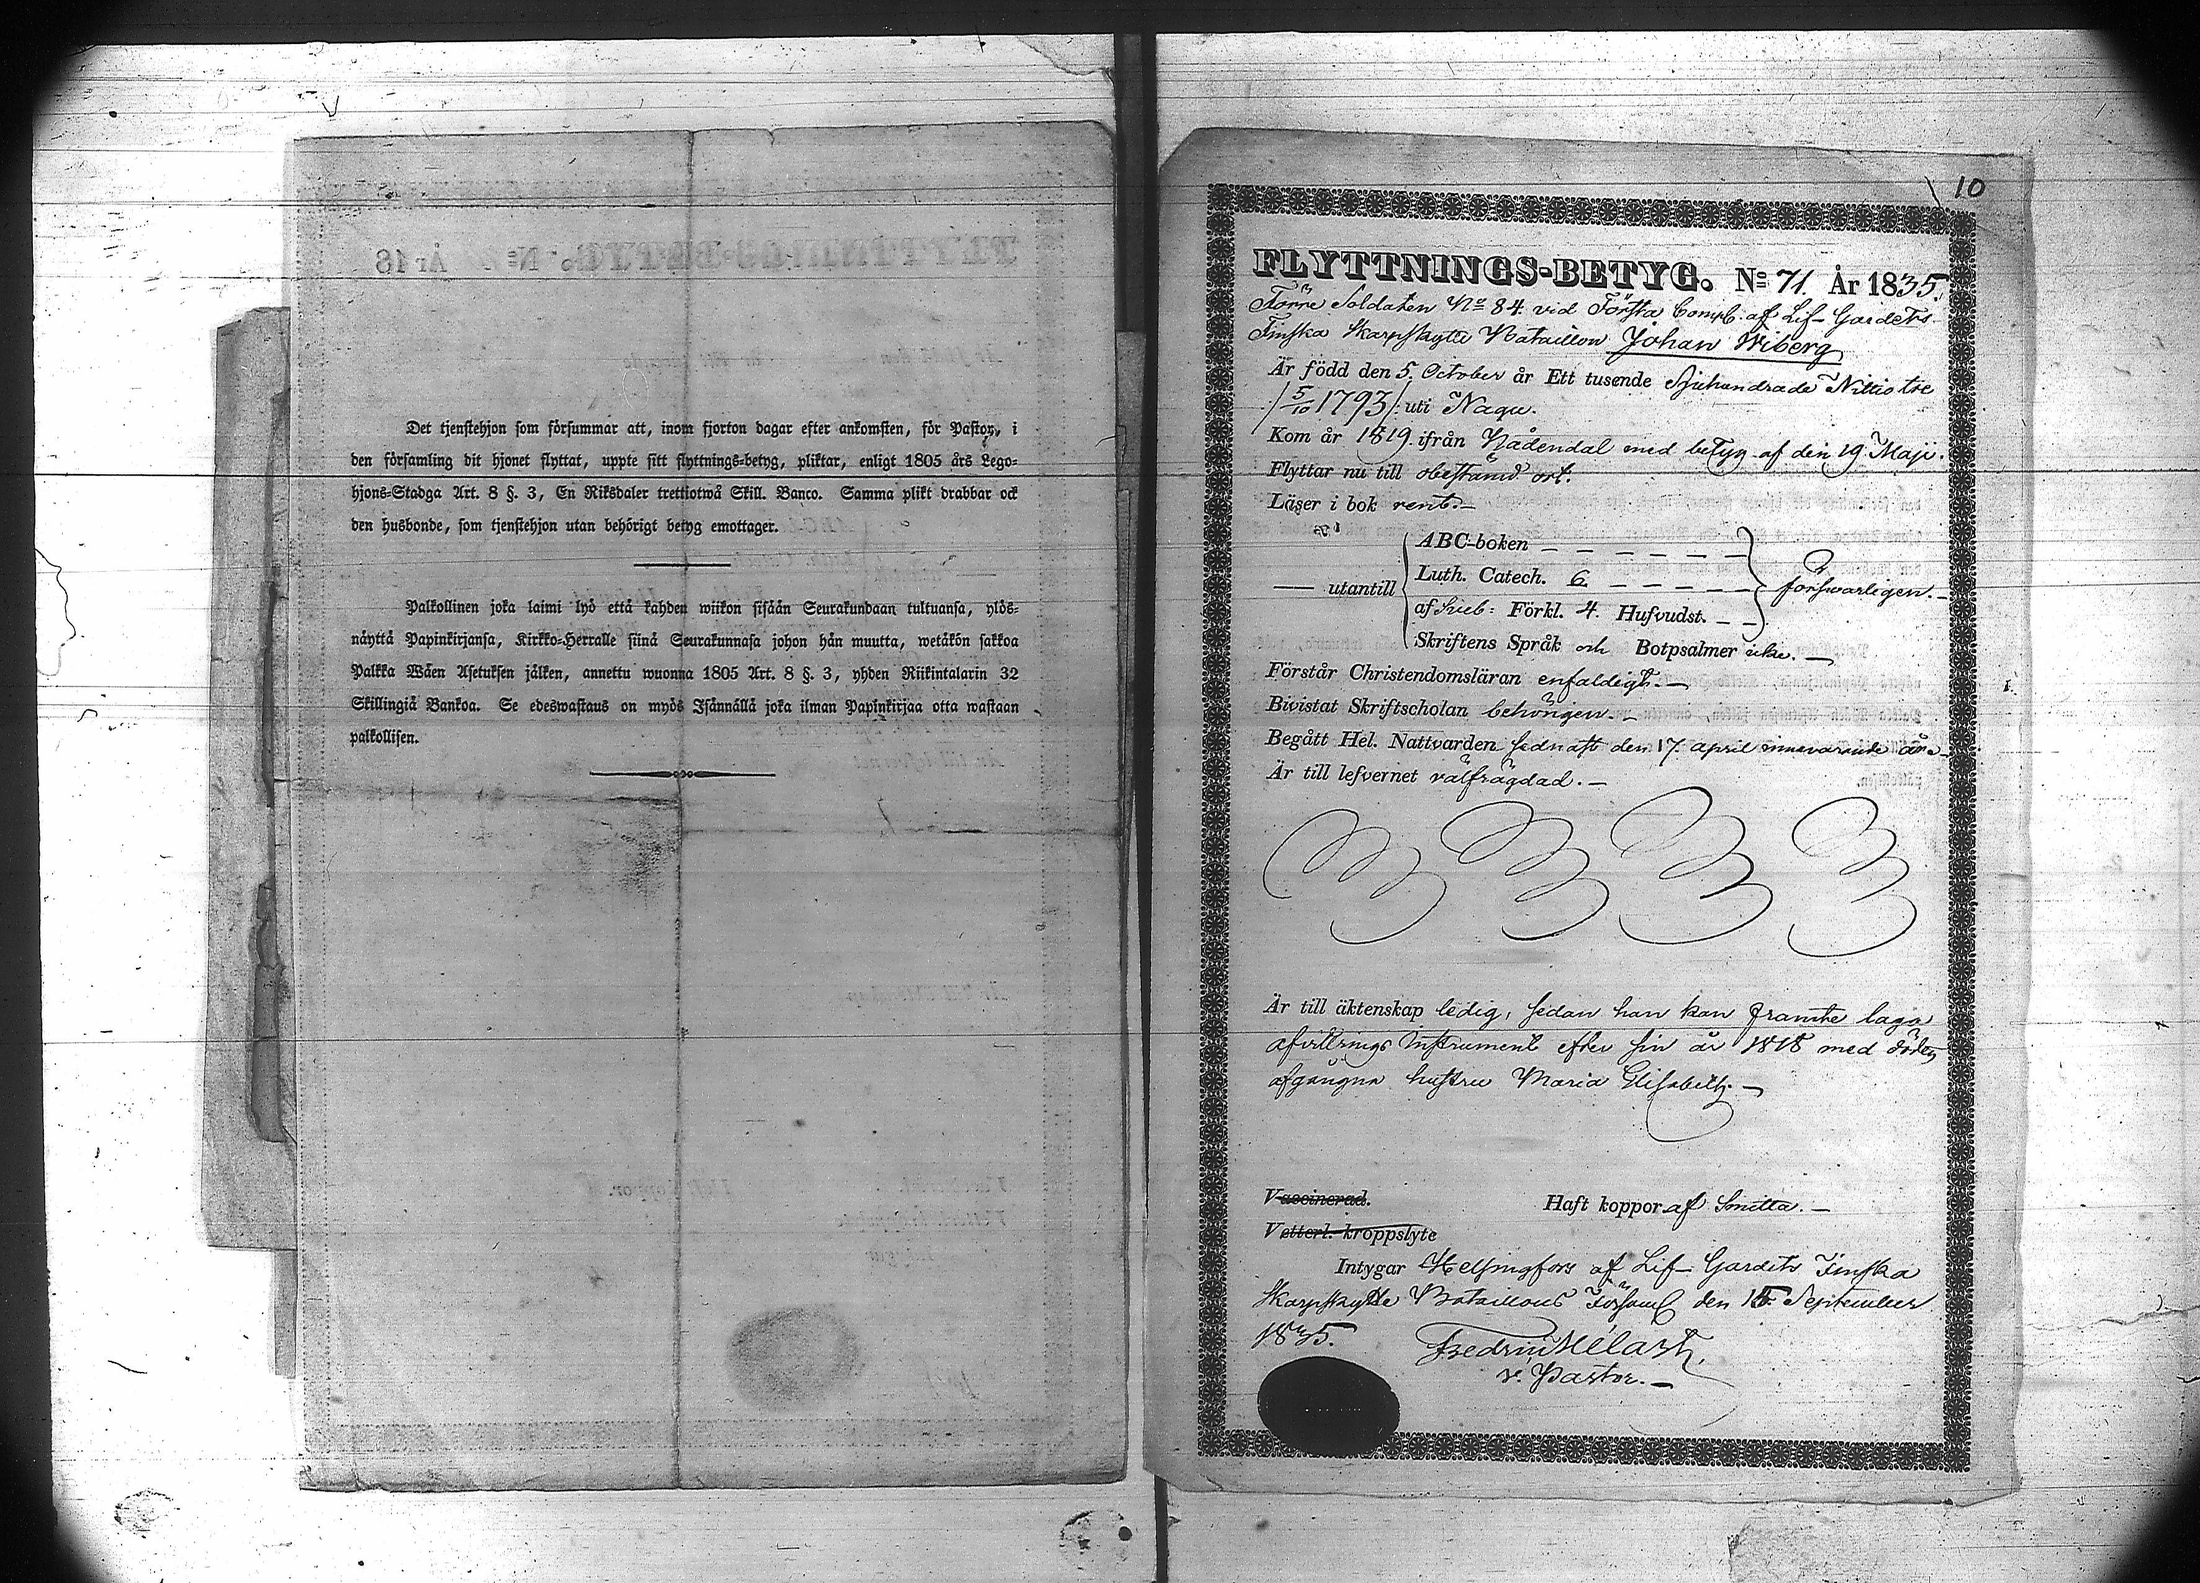 Det tjenstehjon som försummar att, inom fjorton dagar efter ankomsten, för Pastor, i
den församling dit hjonet flyttat, uppte sitt flyttnings-betyg, pliktar, enligt 1805 års Lego-
hjons-Stadga Art. 8 §. 3, En Riksdaler trettiotwå Skill. Banco. Samma plikt drabbar ock
den husbonde, som tjenstehjon utan behörigt betyg emottager.
Palkollinen joka laimi lyö että kahden wiikon sisään Seurakundaan tultuansa, ylös-
näyttä Papinkirjansa, Kirkko-Herralle siinä Seurakunnasa johon hän muutta, wetäkön sakkoa
Palkka Wäen Asetuksen jälken, annettu wuonna 1805 Art. 8 §. 3, yhden Riikintalarin 32
Skillingiä Bankoa. Se edeswastaus on myös Isännällä joka ilman Papinkirjaa otta wastaan
palkollisen.
10
FLYTTNINGS-BETYG. No 71 År 1835.
Förre Soldaten No 84 vid Första Comp. af Lif-Gardets
Finska Skarpskytte Bataillon Johan Wiberg
Är född den 5. October år Ett tusende Sjuhundrade Nittiotre
/5/10 1793/: uti Nagu.
Kom år 1819 ifrån Nådendal med betyg af den 19 Maji.
Flyttar nu till obestämd ort.
Läser i bok rent.—
— utantill
ABC-boken — — — — — —
Luth. Catech. 6 — — — —
af Sveb: Förkl. 4. Hufvudst. — —
försvarligen.—
Skriftens Språk och Botpsalmer icke. —
Förstår Christendomsläran enfaldigt.—
Bivistat Skriftscholan behörigen.—
Begått Hel. Nattvarden sednast den 17 april innevarande år.—
Är till lefvernet välfrägdad.—
Är till äktenskap ledig, sedan han kan framte laga
afvittrings Instrument efter sin år 1818 med döden
afgångna hustru Maria Elisabeth.—
Vaccinerad. Haft koppor af Smitta.—
Vetterl. kroppslyte
Intygar Helsingfors af Lif-Gardets Finska
Skarpskytte Bataillons Församl den 15 September
1835.
Fredric Mélart,
v. Pastor.—